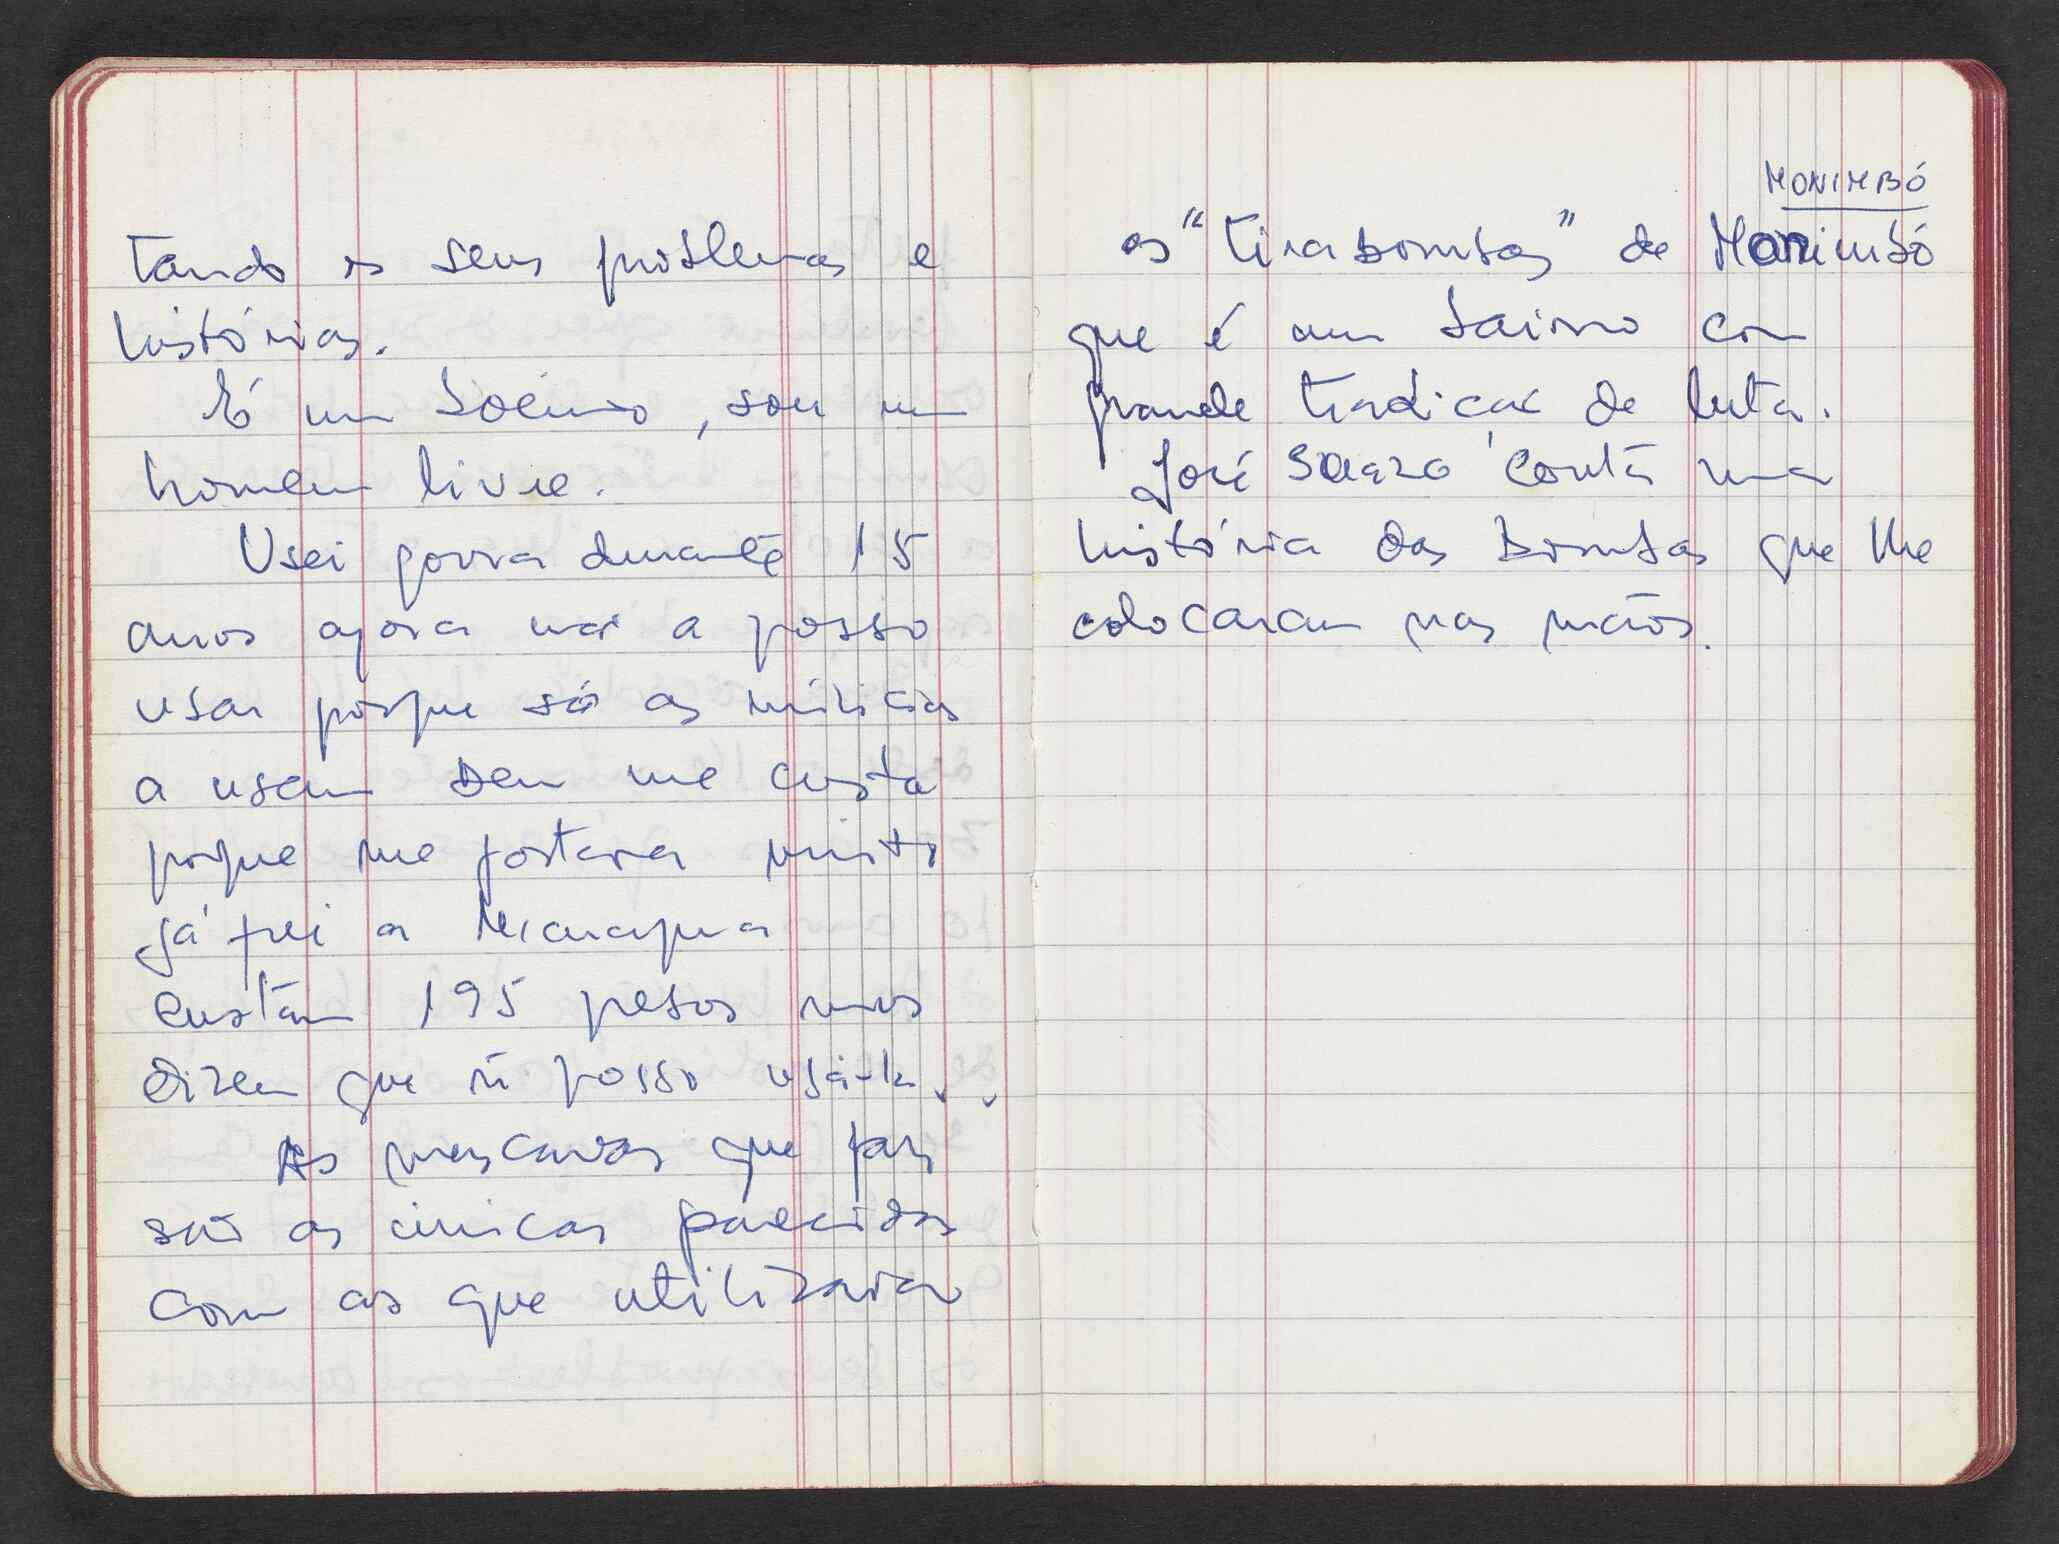 tando os seus problemas e
histórias.
É um boémio, sou um
homem livre.
Usei gorra durante 15
anos agora não a posso
usar porque só as milicias
a usam bem me custa
porque me gostava muito
já fui a Nicaragua
custam 195 pesos mas
dizem que ñ posso usá-la.
As mascaras que faz
são as únicas parecidas
com as que utilizavam
MONIMBÓ
os "tirabombas" de Monimbó
que é um bairro com
grande tradição de luta.
José conta uma
história das bombas que lhe
colocaram nas mãos.